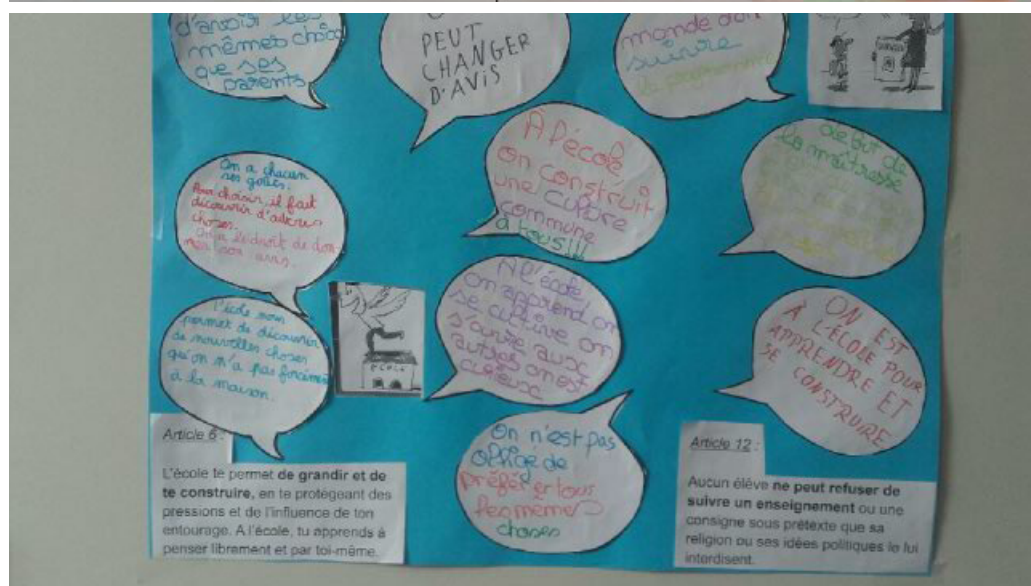 d'avoir les
mêmes choix
que ses
parents
PEUT
CHANGER
D'AVIS
monde doit
suivre
le programme
À l'école,
on construit
une culture
commune
à tous!!!
début de
la maîtresse
On a chacun
ses goûts.
Pour choisir, il faut
découvrir d'autres
choses.
On a le droit de don-
ner son avis.
L'école nous
permet de découvrir
de nouvelles choses
qu'on n'a pas forcément
à la maison.
ÉCOLE
A l'école,
on apprend on
se cultive on
s'ouvre aux
autres on est
curieux
ON EST
À L'ÉCOLE POUR
APPRENDRE ET
SE CONSTRUIRE
On n'est pas
obligé de
préférer tous
les mêmes
choses
Article 6 :
L'école te permet de grandir et de
te construire, en te protégeant des
pressions et de l'influence de ton
entourage. A l'école, tu apprends à
penser librement et par toi-même.
Article 12 :
Aucun élève ne peut refuser de
suivre un enseignement ou une
consigne sous prétexte que sa
religion ou ses idées politiques le lui
interdisent.